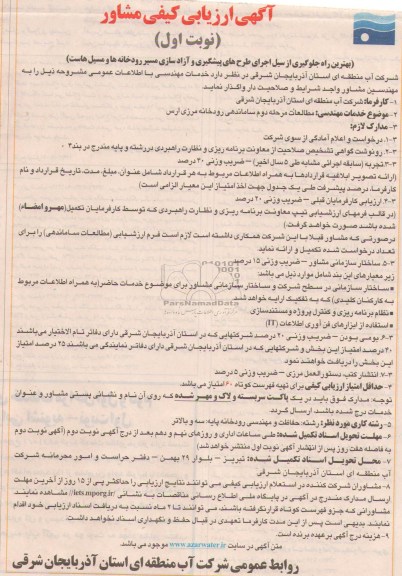 آگهی ارزیابی کیفی مشاور
(نوبت اول)
(بهترین راه جلوگیری از سیل اجرای طرح های پیشگیری و آزاد سازی مسیر رودخانه ها و مسیل هاست)
شرکت آب منطقه ای استان آذربایجان شرقی در نظر دارد خدمات مهندسی با اطلاعات عمومی مشروحه ذیل را به
مهندسین مشاور واجد شرایط و صلاحیت دار واگذار نماید.
۱- کارفرما: شرکت آب منطقه ای استان آذربایجان شرقی
۲- موضوع خدمات مهندسی: مطالعات مرحله دوم ساماندهی رودخانه مرزی ارس
۳- مدارک لازم:
۳-۱. درخواست و اعلام آمادگی از سوی شرکت
۳-۲. رونوشت گواهی تشخیص صلاحیت از معاونت برنامه ریزی و نظارت راهبردی در رشته و پایه مندرج در بند ۴
۳-۳. تجربه (سابقه اجرائی مشابه طی ۵ سال اخیر) – ضریب وزنی ۳۰ درصد
(ارائه تصویر ابلاغیه قراردادها به همراه اطلاعات مربوط به هر قرارداد شامل عنوان، مبلغ، مدت، تاریخ قرارداد و نام
کارفرما، درصد پیشرفت طی یک جدول جهت اخذ امتیاز این معیار الزامی است)
۳-۴. ارزیابی کارفرمایان قبلی – ضریب وزنی ۲۰ درصد
(در قالب فرمهای ارزشیابی تیپ معاونت برنامه ریزی و نظارت راهبردی که توسط کارفرمایان تکمیل (مهر و امضاء)
شده باشند صورت خواهد گرفت)
درصورتی که مشاور قبلا با این شرکت همکاری داشته است لازم است فرم ارزشیابی (مطالعات ساماندهی) را برای
تعداد درخواست شده تکمیل و ارائه نماید.
۳-۵. ساختار سازمانی مشاور – ضریب وزنی ۱۵ درصد
زیر معیارهای این بند شامل موارد ذیل می باشد:
ساختار سازمانی در سطح شرکت و ساختار سازمانی مشاور برای موضوع خدمات حاضر (به همراه اطلاعات مربوط
به کارکنان کلیدی) که به تفکیک ارایه خواهد شد.
نظام برنامه ریزی و کنترل پروژه و مستندسازی
استفاده از ابزارهای فن آوری اطلاعات (IT)
۳-۶. بومی بودن – ضریب وزنی ۲۰ درصد شرکتهایی که در استان آذربایجان شرقی دارای دفاتر تام الاختیار می باشند
درصد امتیاز این بخش و شرکتهایی که در استان آذربایجان شرقی دارای دفاتر نمایندگی می باشند ۲۵ درصد امتیاز
این بخش را دریافت خواهند نمود
۳-۷. انتشار کتب، دستورالعمل مرزی – ضریب وزنی ۵ درصد
حداقل امتیاز ارزیابی کیفی برای تهیه فهرست کوتاه ۶۰ امتیاز می باشد.
توجه: مدارک فوق باید در یک پاکت سربسته و لاک و مهر شده که روی آن نام و نشانی پستی مشاور و عنوان
خدمات درج شده باشد، ارسال گردد
۵- رشته کاری مورد نظر: رشته: حفاظت و مهندسی رودخانه پایه: سه و بالاتر
۶- مهلت تحویل اسناد تکمیل شده: طی ساعات اداری و روزهای نهم و دهم بعد از درج آگهی نوبت دوم (آگهی نوبت دوم
به فاصله هفت روز پس از انتشار آگهی نوبت اول منتشر خواهد شد)
۷- محل تحویل اسناد تکمیل شده: تبریز – بلوار ۲۹ بهمن – دفتر حراست و امور محرمانه شرکت
آب منطقه ای استان آذربایجان شرقی
۸- مشاوران شرکت کننده در استعلام ارزیابی کیفی می توانند نتایج ارزیابی را حداکثر پس از ۱۵ روز از آخرین مهلت
ارسال مدارک مندرج در آگهی در پایگاه ملی اطلاع رسانی مناقصات به نشانی http://iets.mporg.ir مشاهده نمایند.
مشاورانی که جزو فهرست کوتاه قرار نگرفته باشند، می توانند تا ۲ ماه نسبت به دریافت اسناد ارزیابی خود اقدام
نمایند بدیهی است پس از این مدت کارفرما تعهدی در قبال حفظ و نگهداری اسناد نخواهد داشت.
۹- هزینه درج آگهی بر عهده برنده است.
متن آگهی در سایت www.azarwater.ir موجود می باشد.
روابط عمومی شرکت آب منطقه ای استان آذربایجان شرقی
ParsNamadData